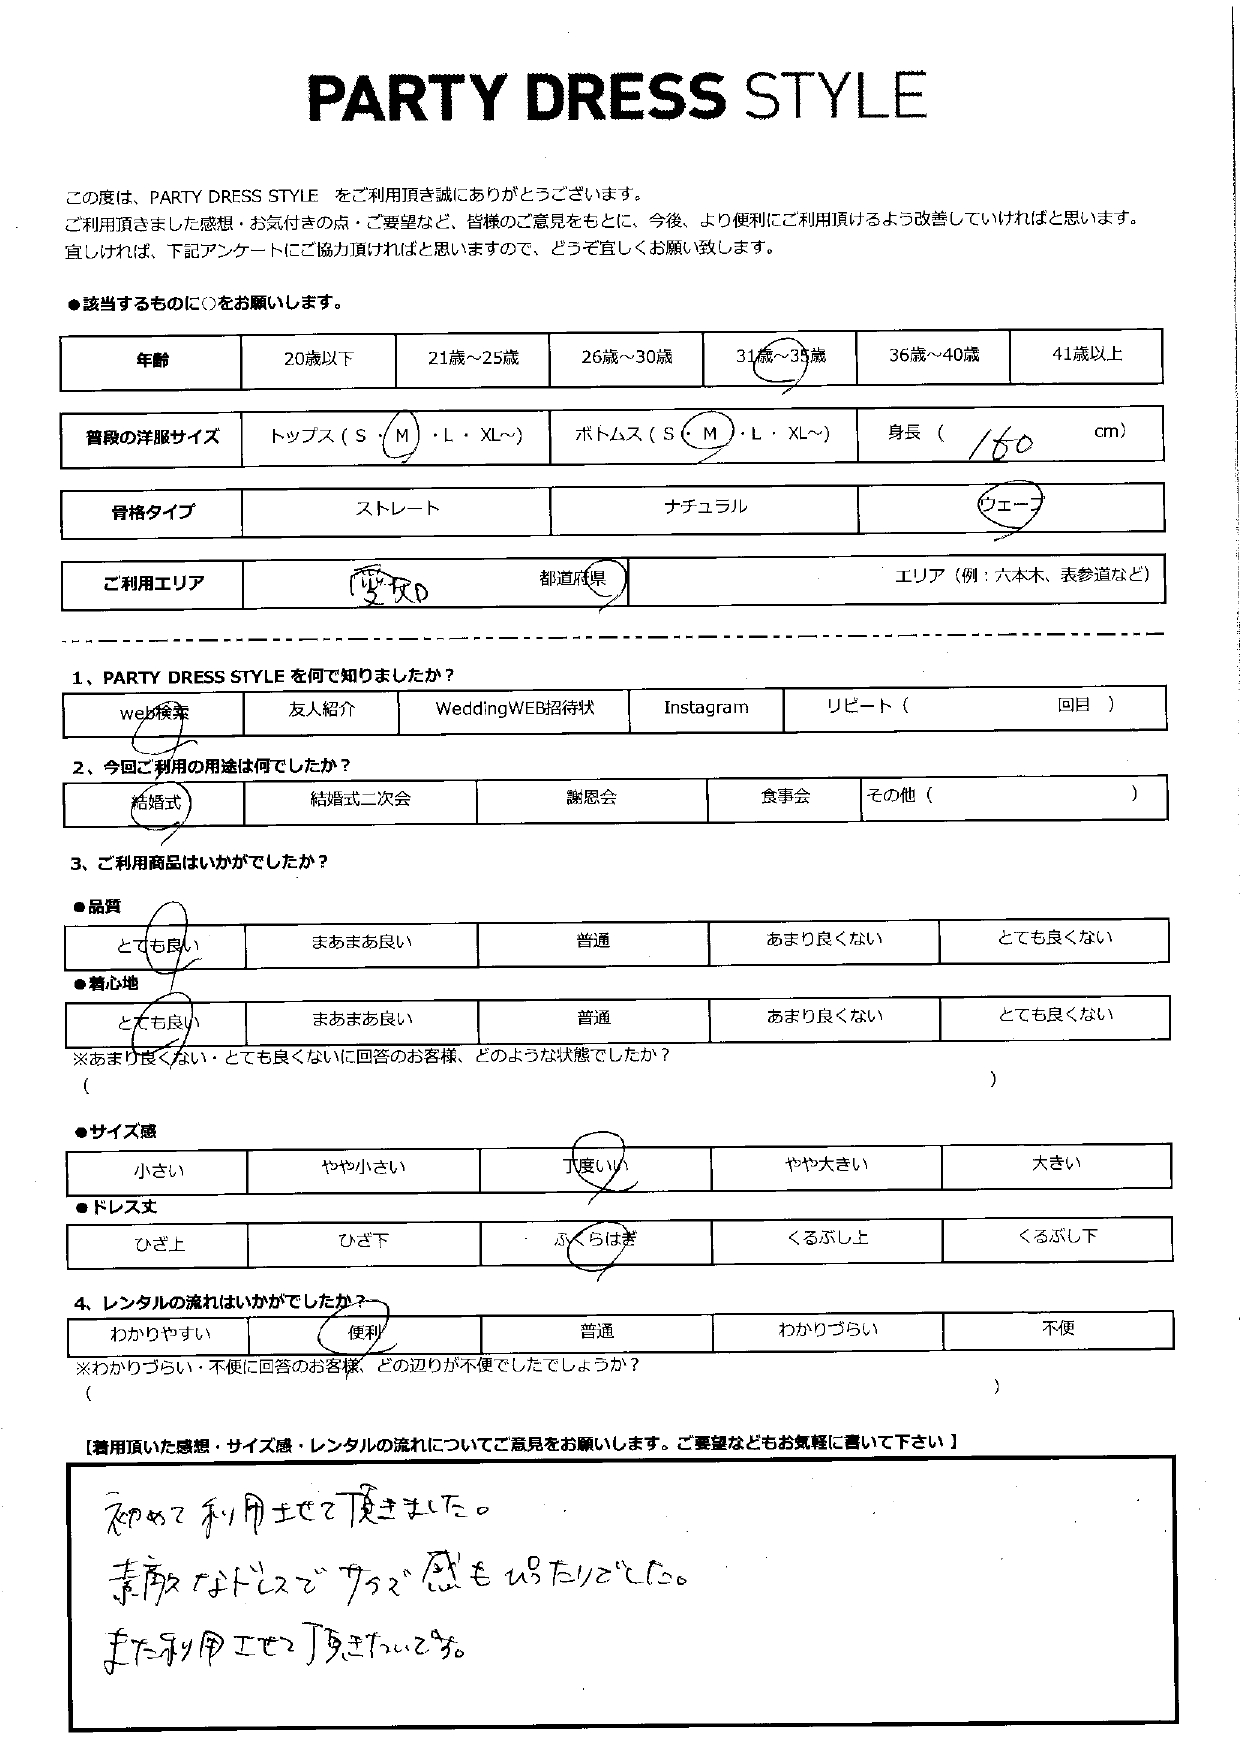 PARTY DRESS STYLE
この度は、PARTY DRESS STYLE をご利用頂き誠にありがとうございます。
ご利用頂きました感想・お気付きの点・ご要望など、皆様のご意見をもとに、今後、より便利にご利用頂けるよう改善していければと思います。
宜しければ、下記アンケートにご協力頂ければと思いますので、どうぞ宜しくお願い致します。
●該当するものに○をお願いします。
年齢 20歳以下 21歳～25歳 26歳～30歳 31歳～35歳 36歳～40歳 41歳以上
普段の洋服サイズ トップス ( S ・ M ・ L ・ XL～) ボトムス ( S ・ M ・ L ・ XL～) 身長 ( 160 cm)
骨格タイプ ストレート ナチュラル ウェーブ
ご利用エリア 愛知 都道府県 エリア（例：六本木、表参道など）
1、PARTY DRESS STYLE を何で知りましたか？
web検索 友人紹介 WeddingWEB招待状 Instagram リピート ( 回目 )
2、今回ご利用の用途は何でしたか？
結婚式 結婚式二次会 謝恩会 食事会 その他 ( )
3、ご利用商品はいかがでしたか？
●品質
とても良い まあまあ良い 普通 あまり良くない とても良くない
●着心地
とても良い まあまあ良い 普通 あまり良くない とても良くない
※あまり良くない・とても良くないに回答のお客様、どのような状態でしたか？
( )
●サイズ感
小さい やや小さい 丁度いい やや大きい 大きい
●ドレス丈
ひざ上 ひざ下 ふくらはぎ くるぶし上 くるぶし下
4、レンタルの流れはいかがでしたか？
わかりやすい 便利 普通 わかりづらい 不便
※わかりづらい・不便に回答のお客様、どの辺りが不便でしたでしょうか？
( )
【着用頂いた感想・サイズ感・レンタルの流れについてご意見をお願いします。ご要望などもお気軽に書いて下さい】
初めて利用させて頂きました。
素敵なドレスでサイズ感もぴったりでした。
また利用させて頂きたいです。